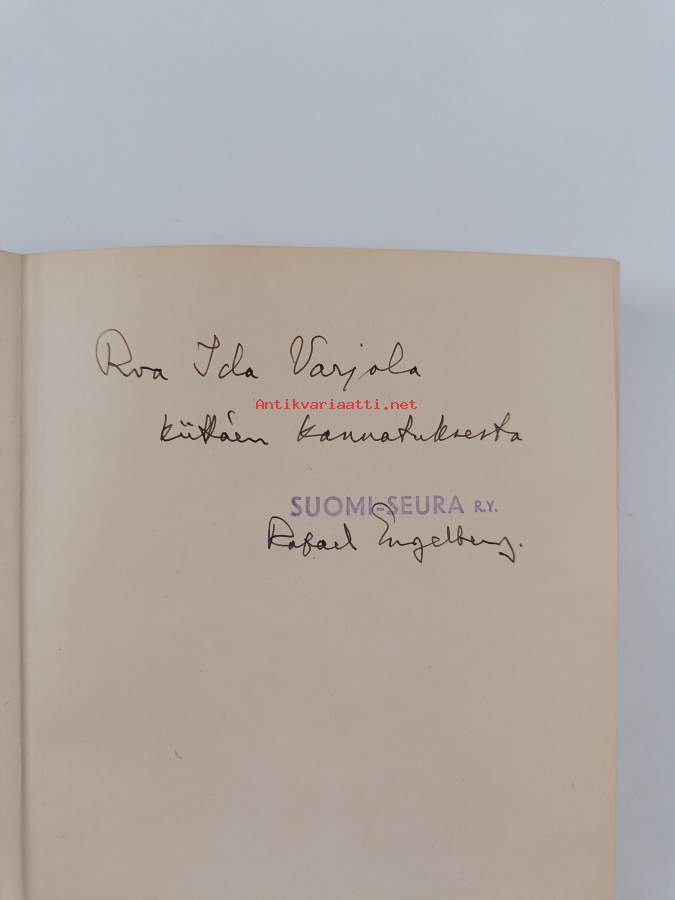 Rva Ida Varjola
Antikvariaatti.net
kiittäen kannatuksesta
SUOMI-SEURA R.Y.
Rafael Engelberg.